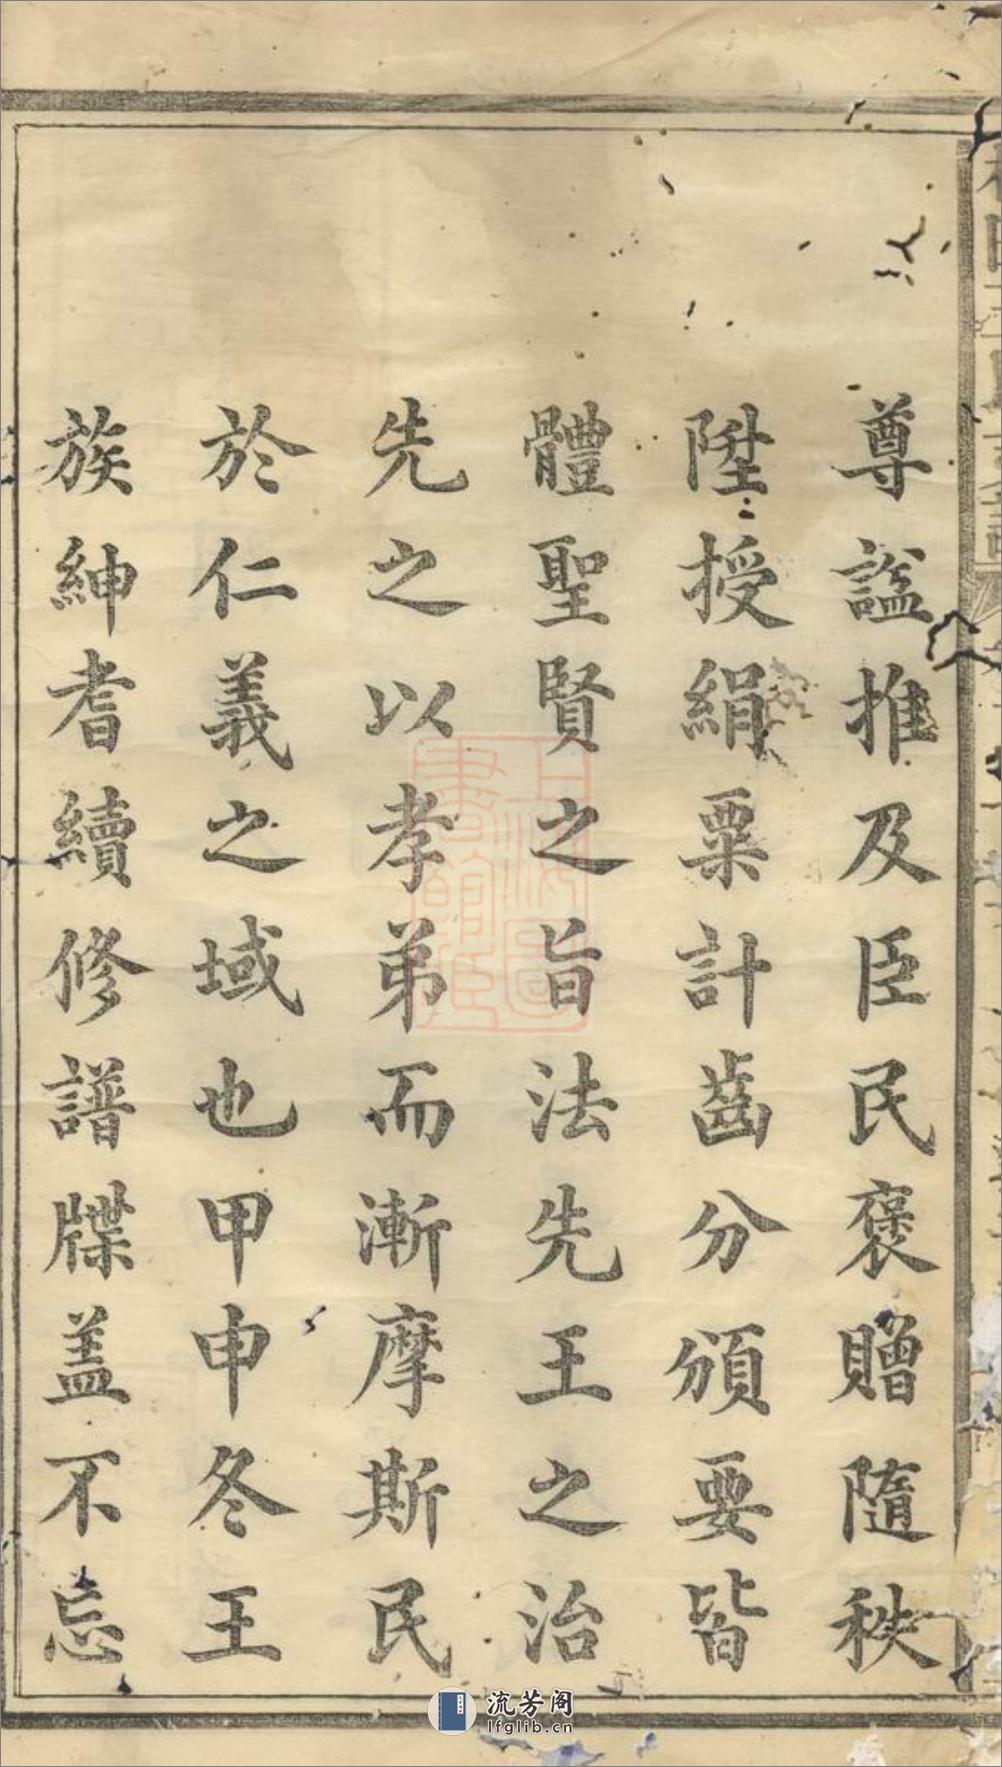 尊諡推及臣民褒贈隨秩
陞授絹粟計齒分頒要皆
體聖賢之旨法先王之治
先之以孝弟而漸摩斯民
於仁義之域也甲申冬王
族紳耆續修譜牒盖不忘
上海圖書館藏
流芳阁
lfglib.cn